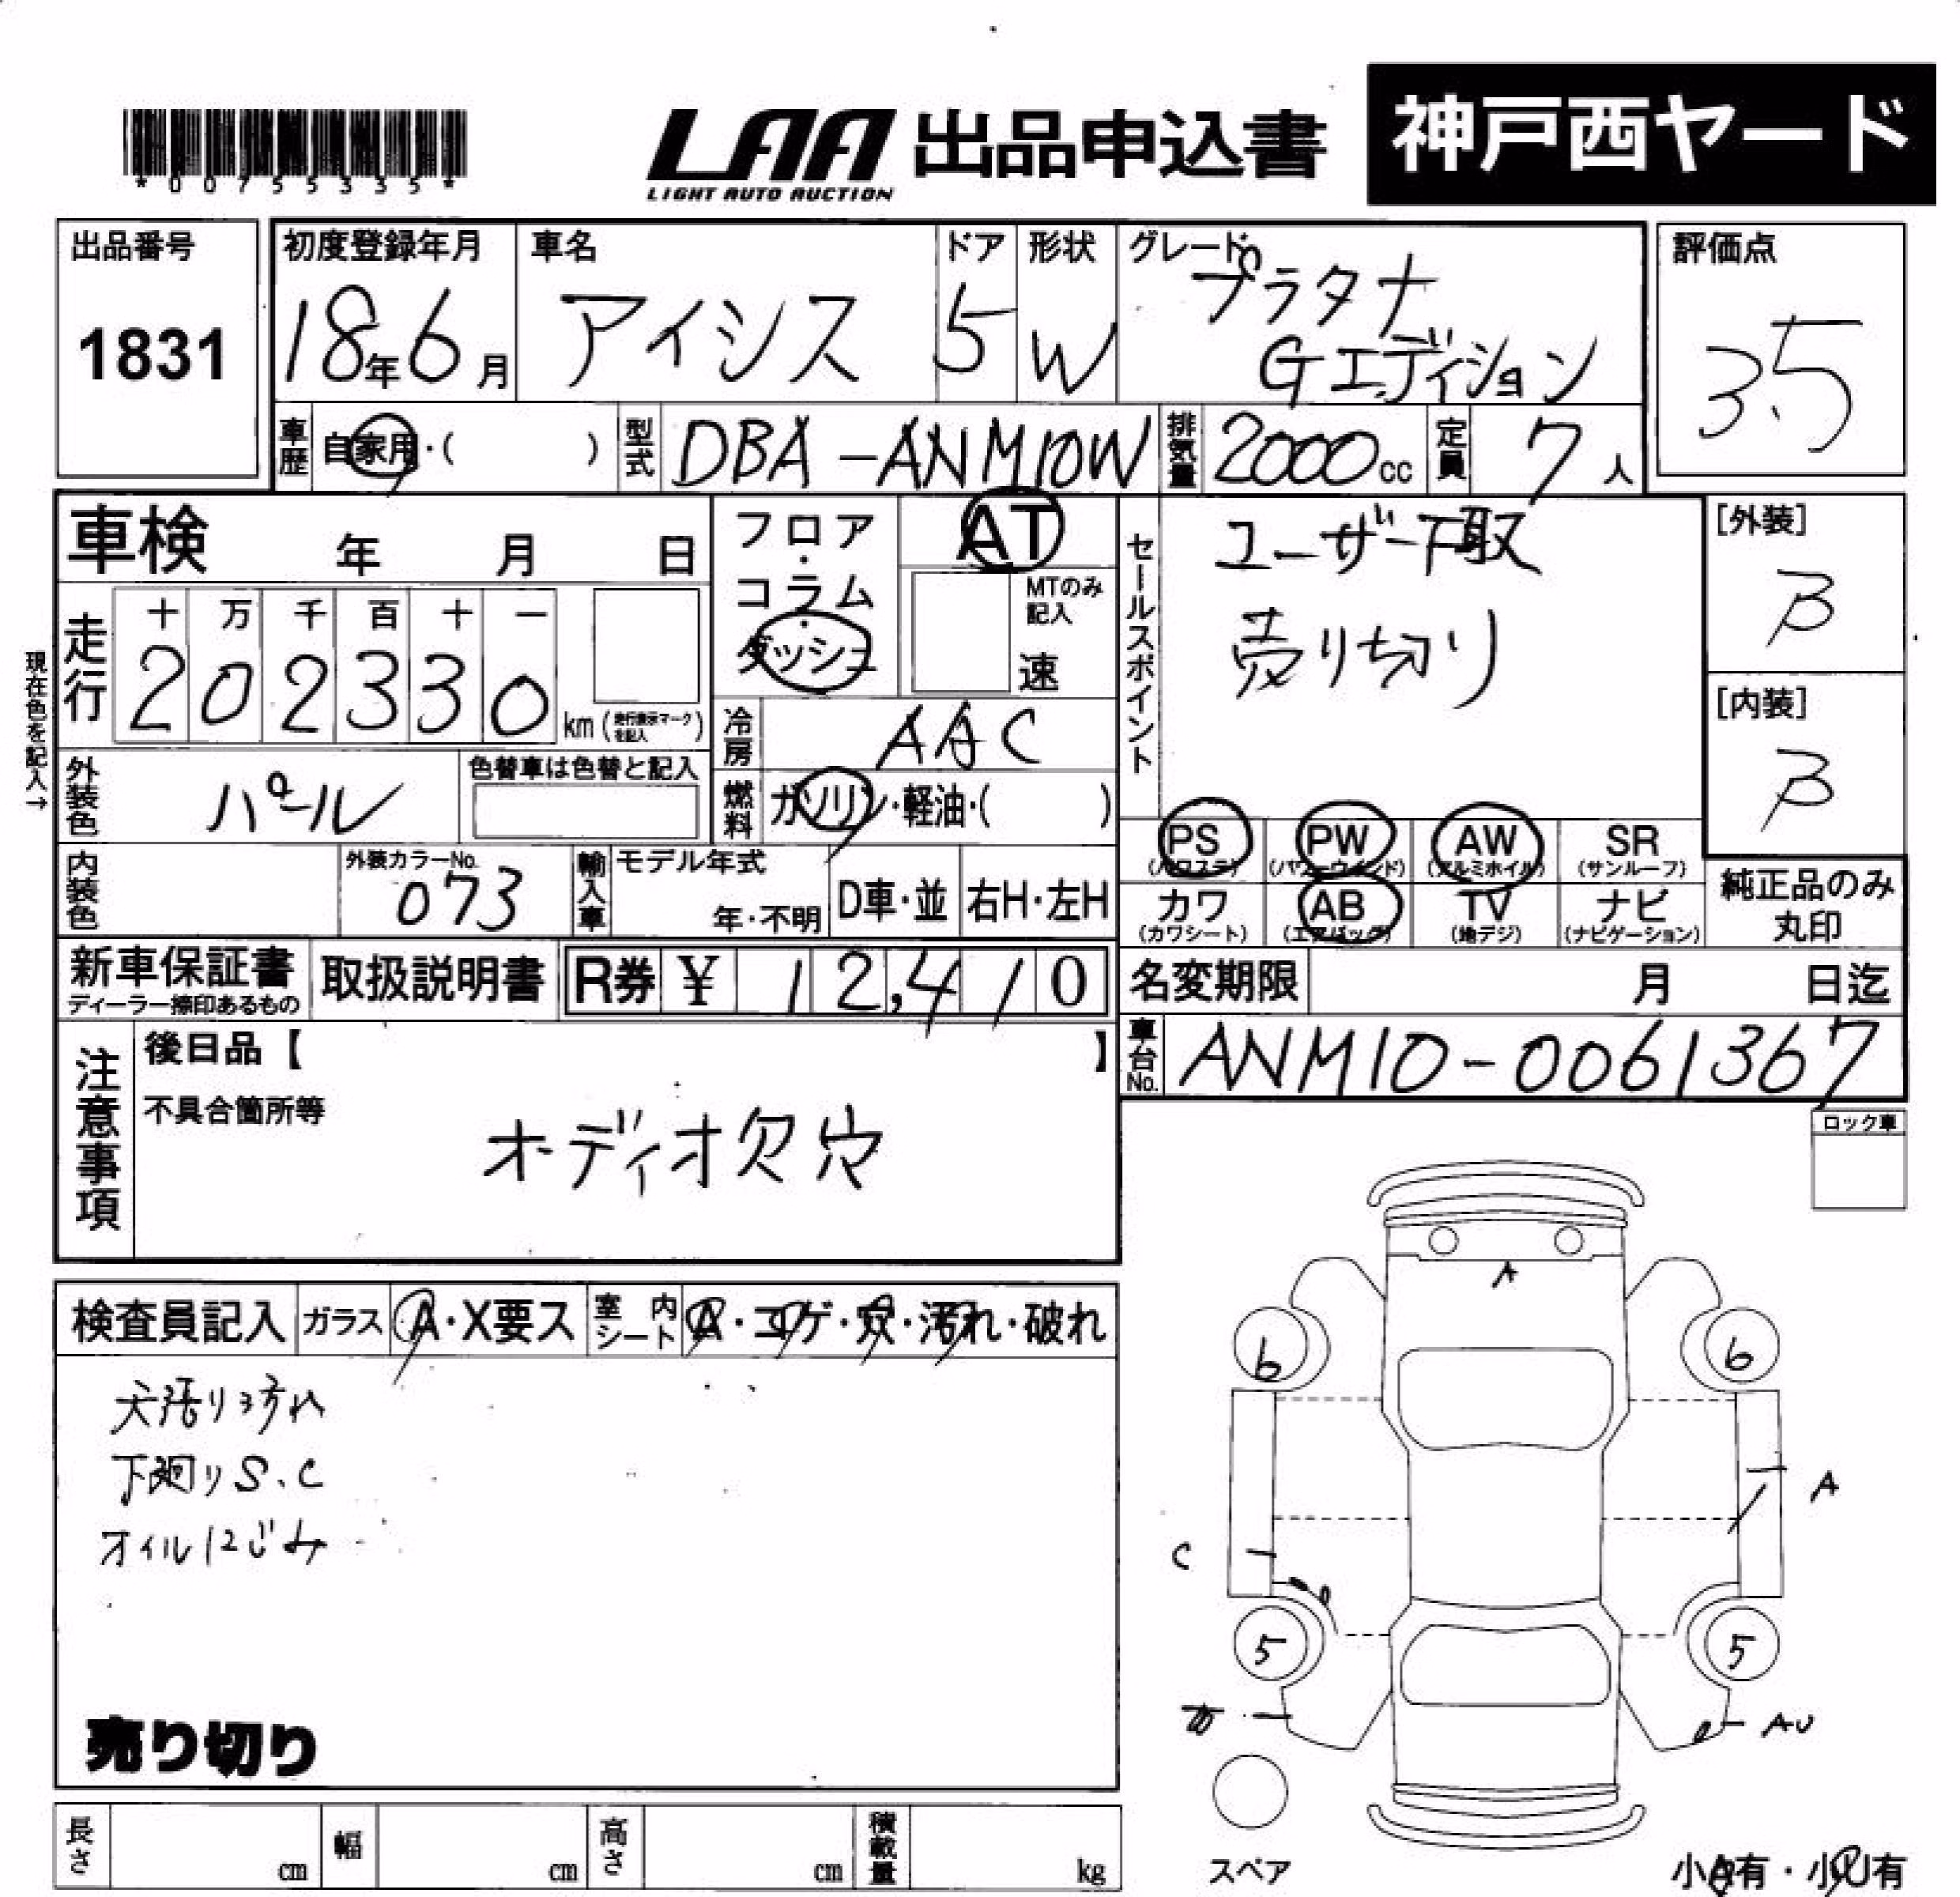 *00755335*
LAA 出品申込書 神戸西ヤード
LIGHT AUTO AUCTION
出品番号 1831
初度登録年月 18年6月
車名 アイシス
ドア 5
形状 W
グレード プラタナ
Gエディション
評価点 3.5
車歴 自家用・( )
型式 DBA-ANM10W
排気量 2000cc
定員 7人
車検 年 月 日
フロア・コラム・ダッシュ
AT
MTのみ記入
速
セールスポイント ユーザー下取
売り切り
[外装] B
[内装] B
現在色を記入→
走行 十万千百十一
202330 km(走行表示マークを記入)
冷房 AAC
外装色 パール
色替車は色替と記入
燃料 ガソリン・軽油・( )
PS (パワステ)
PW (パワーウインド)
AW (アルミホイル)
SR (サンルーフ)
内装色
外装カラーNo. 073
輸入車 モデル年式 年・不明
D車・並
右H・左H
カワ (カワシート)
AB (エアバッグ)
TV (地デジ)
ナビ (ナビゲーション)
純正品のみ丸印
新車保証書
ディーラー捺印あるもの
取扱説明書
R券 ¥ 12,410
名変期限 月 日迄
車台No. ANM10-0061367
注意事項
後日品【 】
不具合箇所等
オーディオ欠 穴
ロック車
検査員記入 ガラス A・X要ス 室内シート A・コゲ・穴・汚れ・破れ
天張り汚れ
下廻りS、C
オイルにじみ
売り切り
A
6 6
A
C
5 5
AU
スペア
小A有・小U有
長さ cm 幅 cm 高さ cm 積載量 kg